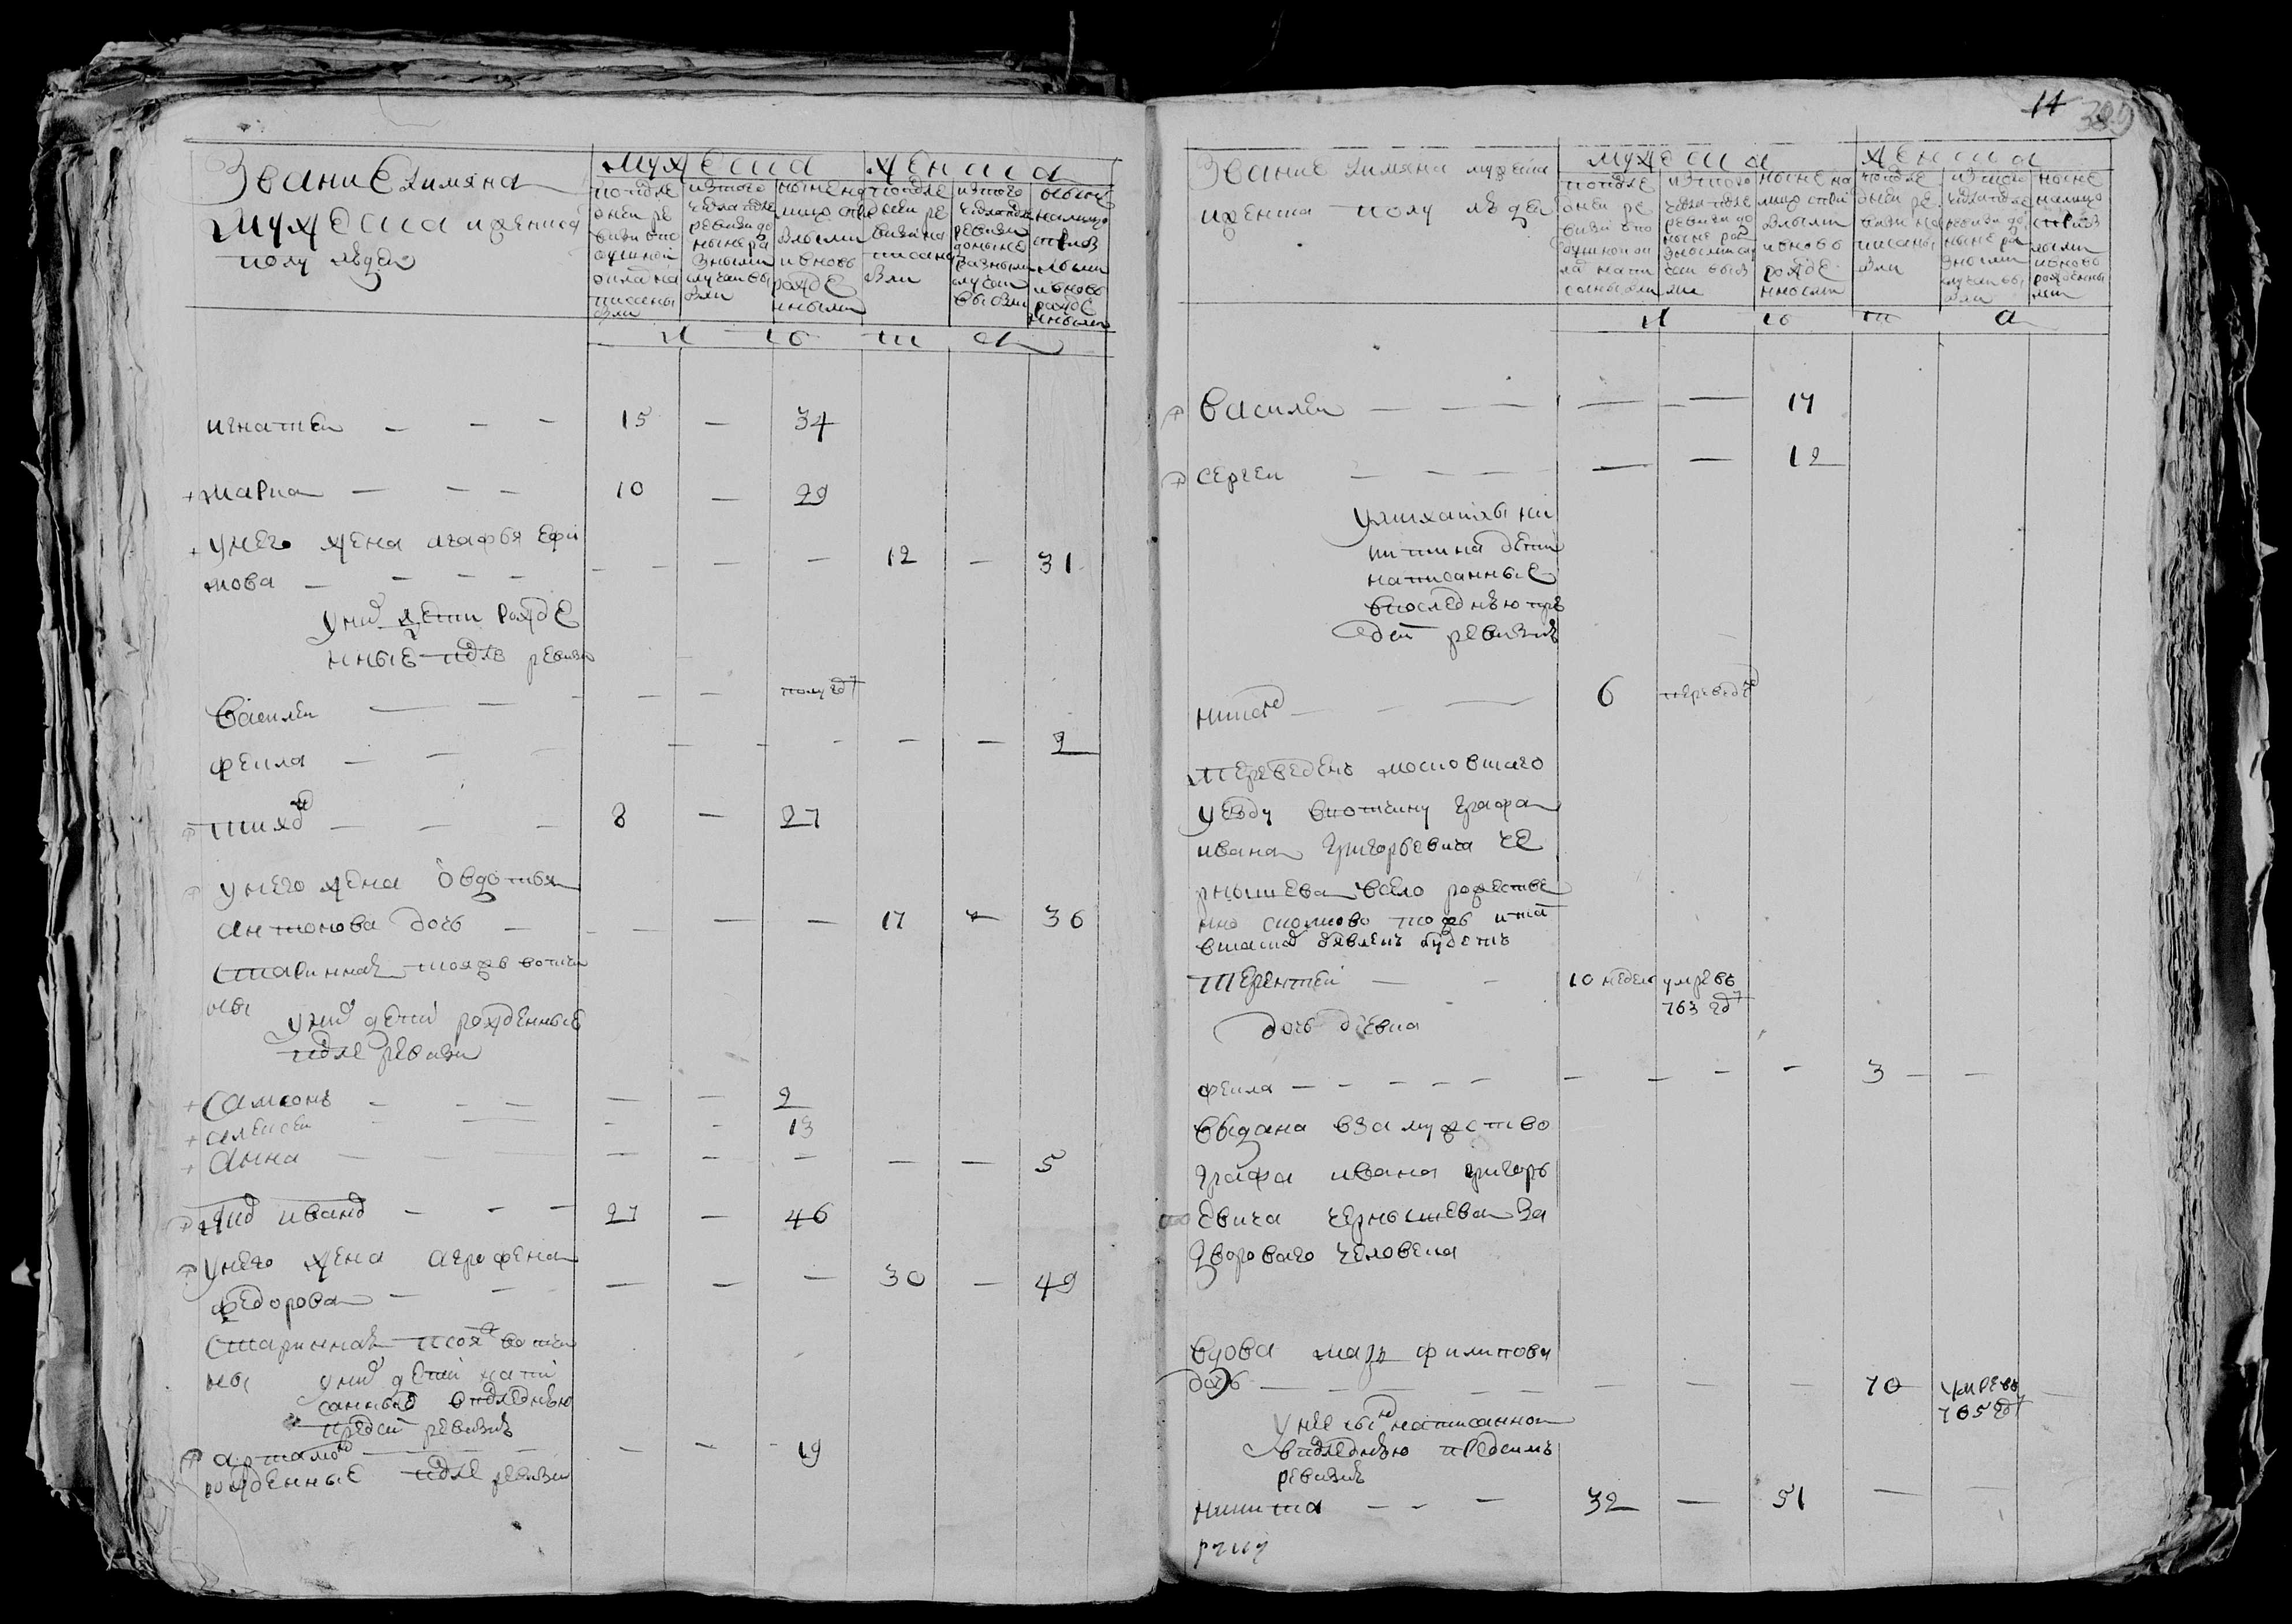 Звание и имяна
мужеска и женска
полу людеи
мужеска
женска
по последней ревизи в подушной оклад написаны были
ис того числа после ревизи до ныне разными случаи выбыли
ныне на лицо с прибылыми и вновь рожденными
по последней ревизи написаны были
ис того числа после ревизи до ныне разными случаи выбыли
ныне на лицо с прибылыми и вновь рожденными
л е т а
игнатеи — — — 15 — 34
марка — — — 10 — 29
у него жена агафья ефи
мова — — — — — — — 12 — 31
у них дети рожде
нные после ревизи
василеи — — — — — полугод
фекла — — — — — — — — 2
тихон — — — 8 — 27
у него жена овдотья
антонова дочь — — — — — 17 — 36
старинная тояжъ вотчи
ны
у них дети рожденные
после ревизи
самсонъ — — — — — 2
алексеи — — — — — 13
анна — — — — — — — — 5
иванъ — — — 27 — 46
у него жена агрофена
федорова — — — — — 30 — 49
старинная тояжъ вотчи
ны у них дети напи
санные в последнюю
предсею ревизию
артамон — — — 19
рожденные после ревизи
14
389
Звание и имяна мужеска
и женска полу людеи
мужеска
женска
по последней ревизи в подушной оклад написаны были
ис того числа после ревизи до ныне разными случаи выбыли
ныне на лицо с прибылыми и вновь рожденными
по последней ревизи написаны были
ис того числа после ревизи до ныне разными случаи выбыли
ныне на лицо с прибылыми и вновь рожденными
л е т а
василеи — — — — — 17
сергеи — — — — — 12
написанные
в последнюю пре
дсею ревизию
6 переведен
переведенъ московскаго
уезду в вотчину графа
ивана григорьевича че
рнышева в село рожестве
но
объявленъ будетъ
терентеи — — 10 недел умре въ
763 год
дочь девка
фекла — — — — — — — — — 3 — —
выдана в замужство
графа ивана григорь
евича чернышева за
дворового человека
вдова марья филипова
дочь — — — — — — 70 умре въ
765 год
у нее сын написанной
в последнюю предсимъ
ревизию
никита — — — 32 — 51 — —